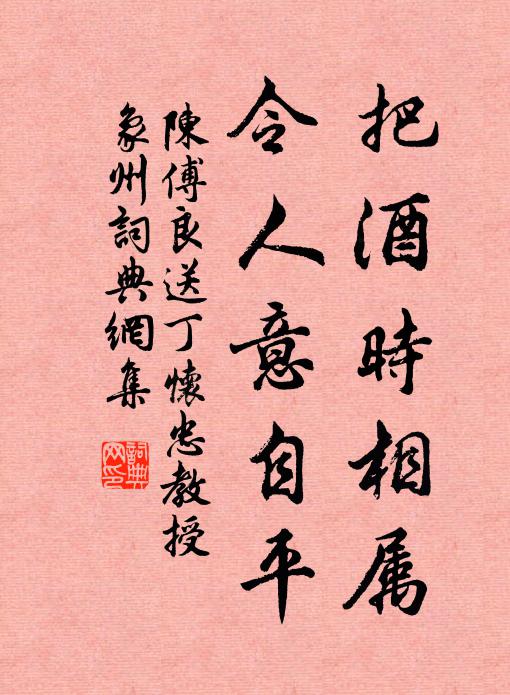 把酒時相属
令人意自平
陳傅良送丁懷忠教授
象州詞典網集
詞典網印